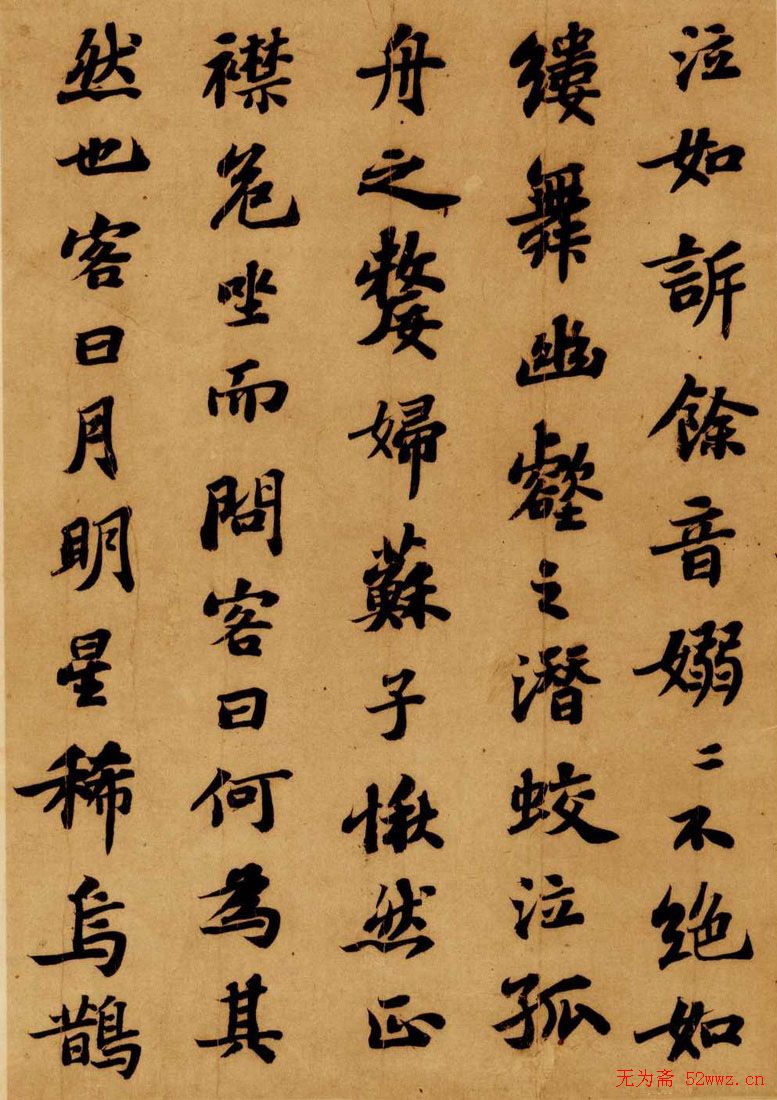 泣如訴餘音嫋〻不絶如
縷舞幽壑之潛蛟泣孤
舟之嫠婦蘇子愀然正
襟危坐而問客曰何為其
然也客曰月明星稀烏鵲
无为斋 52wwz.cn